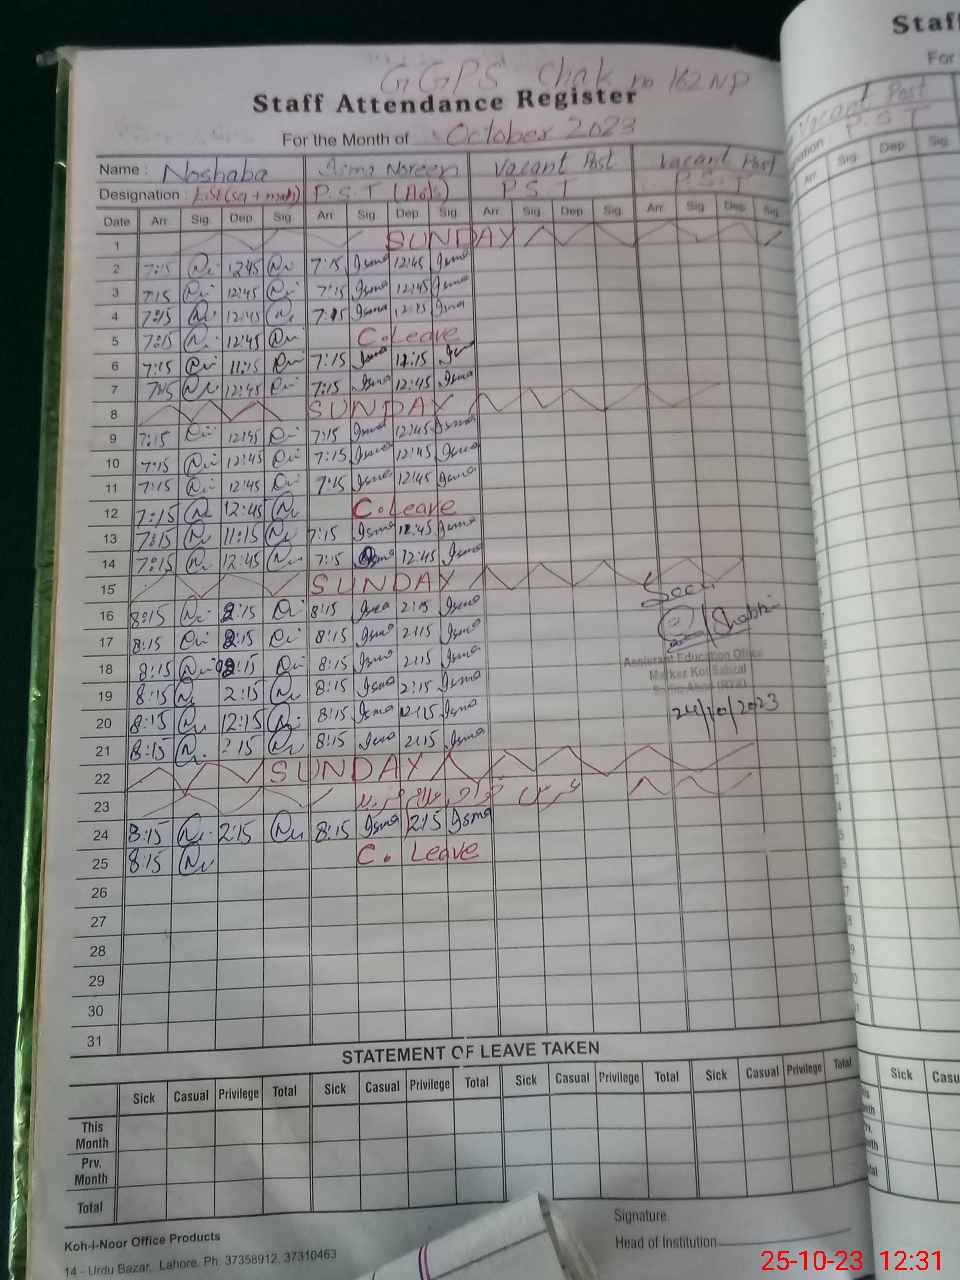 GGPS Chak no 162 NP
Staff Attendance Register
For the Month of October 2023
Name : Noshaba Isma Noreen Vacant Post Vacant Post
Designation : ESE (sci + math) P.S.T P.S.T P.S.T
Date Arr. Sig. Dep. Sig. Arr. Sig. Dep. Sig. Arr. Sig. Dep. Sig. Arr. Sig. Dep. Sig.
1 SUNDAY
2 7:15 12:45 7:15 Isma 12:45 Isma
3 7:15 12:45 7:15 Isma 12:45 Isma
4 7:15 12:45 7:15 Isma 12:45 Isma
5 7:15 12:45 C.Leave
6 7:15 11:15 7:15 Isma 12:15 Isma
7 7:15 12:45 7:15 Isma 12:45 Isma
8 SUNDAY
9 7:15 12:45 7:15 Isma 12:45 Isma
10 7:15 12:45 7:15 Isma 12:45 Isma
11 7:15 12:45 7:15 Isma 12:45 Isma
12 7:15 12:45 C.Leave
13 7:15 11:15 7:15 Isma 12:45 Isma
14 7:15 12:45 7:15 Isma 12:45 Isma
15 SUNDAY
Seen
16 8:15 2:15 8:15 Isma 2:15 Isma
17 8:15 2:15 8:15 Isma 2:15 Isma
Assistant Education Officer
18 8:15 2:15 8:15 Isma 2:15 Isma
Markaz Kot Sabzal
19 8:15 2:15 8:15 Isma 2:15 Isma
24/10/2023
20 8:15 12:15 8:15 Isma 2:15 Isma
21 8:15 2:15 8:15 Isma 2:15 Isma
22 SUNDAY
23
24 8:15 2:15 8:15 Isma 2:15 Isma
25 8:15 C. Leave
26
27
28
29
30
31
STATEMENT OF LEAVE TAKEN
Sick Casual Privilege Total Sick Casual Privilege Total Sick Casual Privilege Total Sick Casual Privilege Total
This Month
Prv. Month
Total
Signature
Head of Institution
Koh-i-Noor Office Products
14 - Urdu Bazar, Lahore. Ph: 37358912, 37310463
Vacant Post
P.S.T
Arr. Sig. Dep. Sig.
Sick
25-10-23 12:31